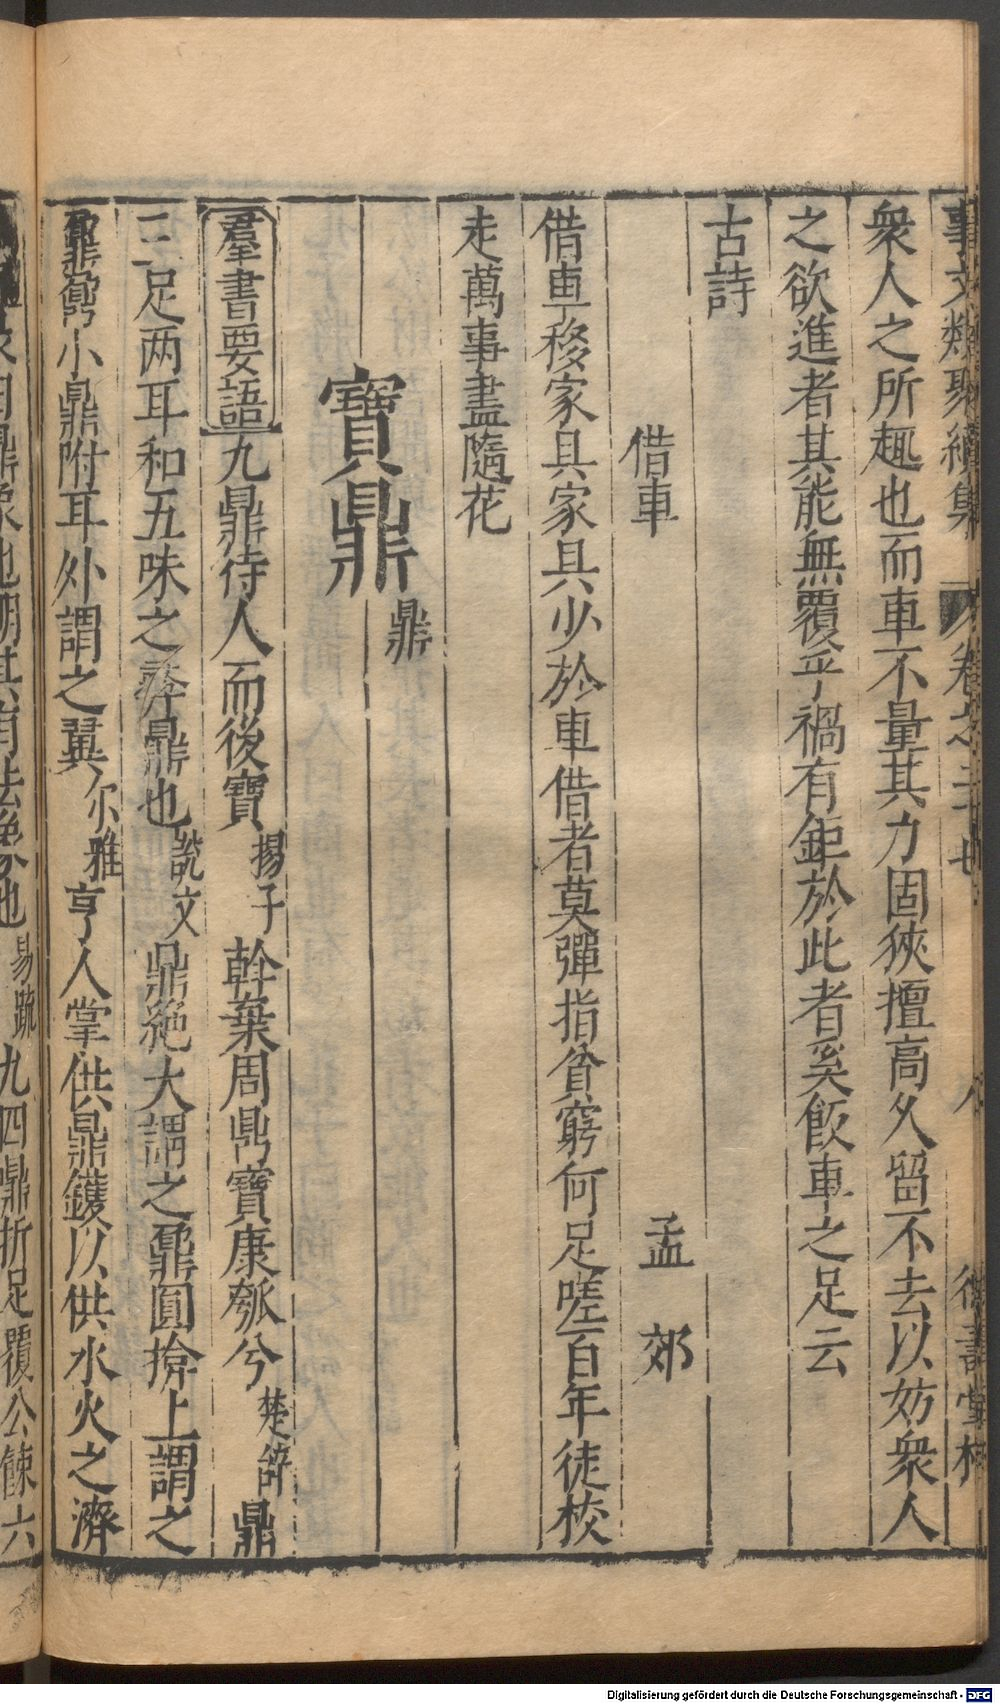 事文類聚續集 卷之二十七 八 德壽堂梓
衆人之所趣也而車不量其力固狹擅高久留不去以妨衆人
之欲進者其能無覆乎禍有鉅於此者奚飮車之足云
古詩
借車 孟郊
借車移家具家具少於車借者莫彈指貧窮何足嗟百年徒校
走萬事盡隨花
寶鼎 鼎
羣書要語九鼎待人而後寶揚子幹棄周鼎寶康瓠兮楚辞鼎
三足两耳和五味之寳鼎也說文鼎絶大謂之鼐圓揜上謂之
鼒小鼎附耳外謂之翼尔雅亨人掌供鼎鑊以供水火之濟
鼎象也明其有法象也易疏九四鼎折足覆公餗六
Digitalisierung gefördert durch die Deutsche Forschungsgemeinschaft - DFG